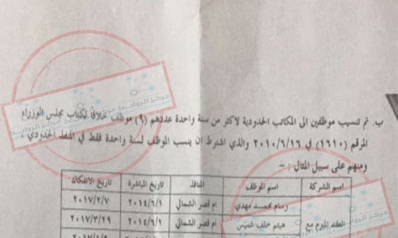 ب. تم تنسيب موظفين الى المكاتب الحدودية لاكثر من سنة واحدة عددهم (٩) موظف خلافا لكتاب مجلس الوزراء
المرقم (١٦١٠) في ٢٠١٠/٦/١٦ والذي اشترط ان ينسب الموظف لسنة واحدة فقط في المنفذ الحدودي .
ومنهم على سبيل المثال :-
اسم الشركة اسم الموظف المنفذ تاريخ المباشرة تاريخ الانفكاك
وسام محمد مهدي ام قصر الشمالي ٢٠١٤/٦/١ ٢٠١٧/٢/٧
العقد المبرم مع هيثم خلف ام قصر الشمالي ٢٠١٤/٦/١ ٢٠١٧/٣/٢٩